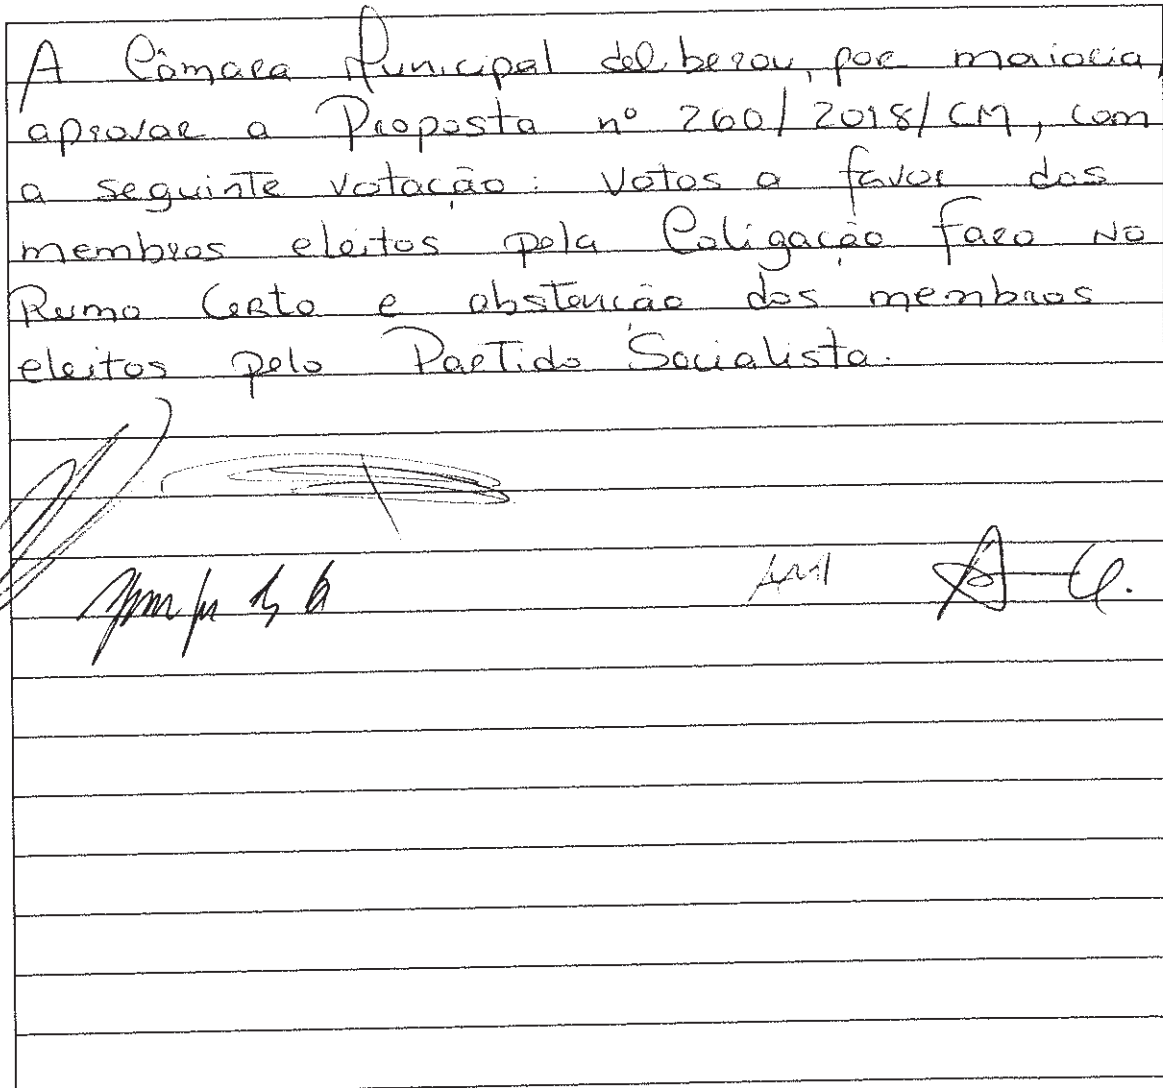 A Câmara Municipal deliberou, por maioria,
aprovar a Proposta nº 260/2018/CM, com
a seguinte votação: Votos a favor dos
membros eleitos pela Coligação Faro No
Rumo Certo e abstenção dos membros
eleitos pelo Partido Socialista.